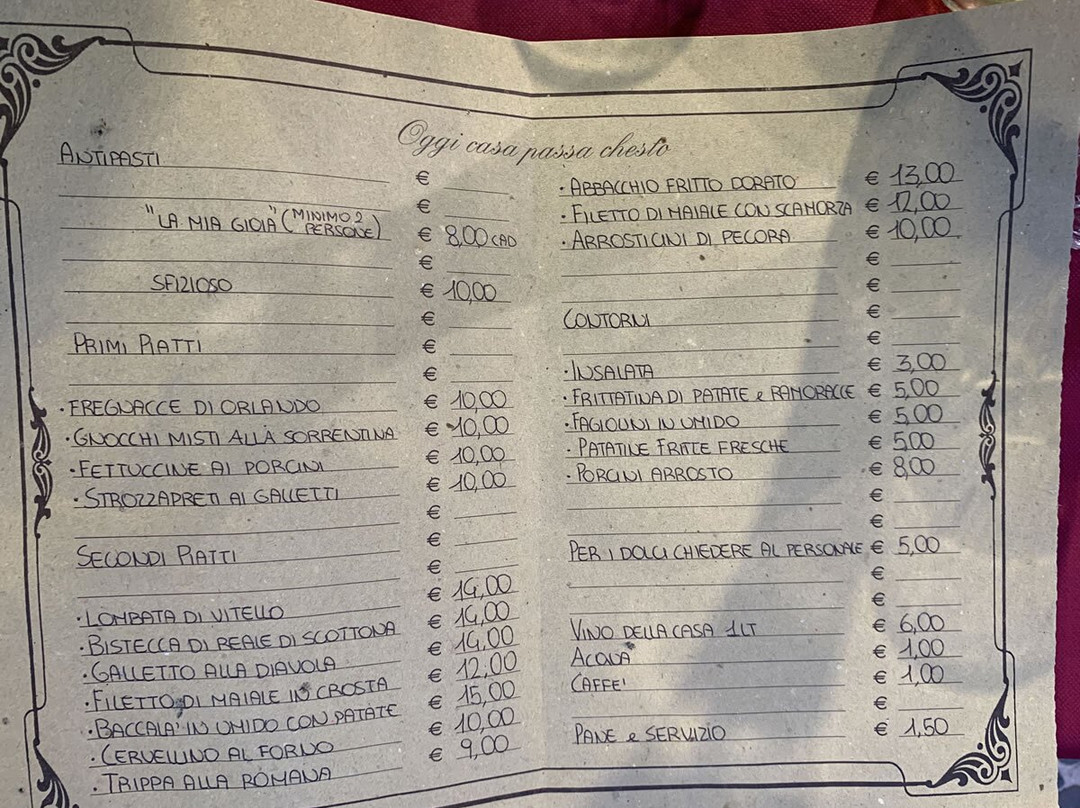 Oggi casa passa chesto
ANTIPASTI
€
€
"LA MIA GIOIA" (MINIMO 2 PERSONE) € 8,00 CAD
€
SFIZIOSO € 10,00
€
PRIMI PIATTI €
€
· FREGNACCE DI ORLANDO € 10,00
· GNOCCHI MISTI ALLA SORRENTINA € 10,00
· FETTUCCINE AI PORCINI € 10,00
· STROZZAPRETI AI GALLETTI € 10,00
€
€
SECONDI PIATTI €
· LOMBATA DI VITELLO € 14,00
· BISTECCA DI REALE DI SCOTTONA € 14,00
· GALLETTO ALLA DIAVOLA € 14,00
· FILETTO DI MAIALE IN CROSTA € 12,00
· BACCALA' IN UMIDO CON PATATE € 15,00
· CERVELLINO AL FORNO € 10,00
· TRIPPA ALLA ROMANA € 9,00
· ABBACCHIO FRITTO DORATO € 13,00
· FILETTO DI MAIALE CON SCAMORZA € 12,00
· ARROSTICINI DI PECORA € 10,00
€
€
CONTORNI €
€
· INSALATA € 3,00
· FRITTATINA DI PATATE e RAMORACCE € 5,00
· FAGIOLINI IN UMIDO € 5,00
· PATATINE FRITTE FRESCHE € 5,00
· PORCINI ARROSTO € 8,00
€
€
PER I DOLCI CHIEDERE AL PERSONALE € 5,00
€
€
VINO DELLA CASA 1LT € 6,00
ACQUA € 1,00
CAFFE' € 1,00
€
PANE e SERVIZIO € 1,50